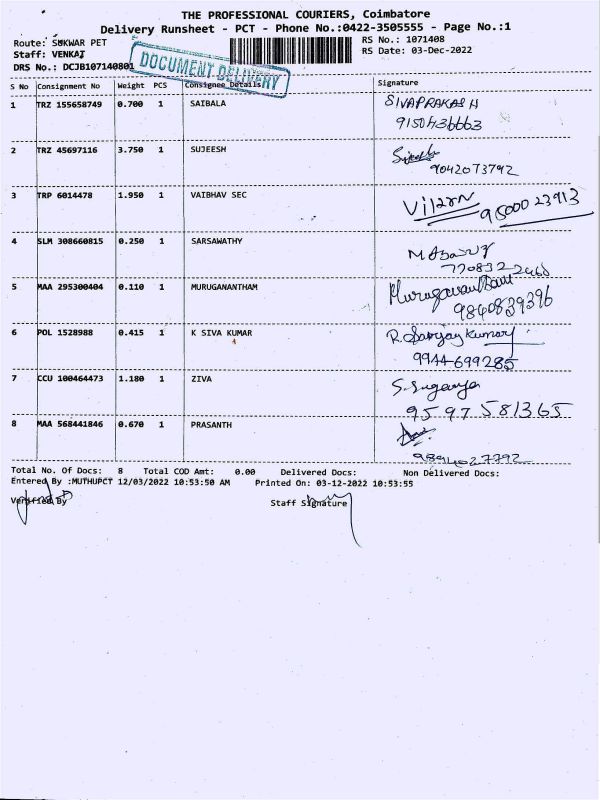 THE PROFESSIONAL COURIERS, Coimbatore
Delivery Runsheet - PCT - Phone No.:0422-3505555 - Page No.:1
Route: SUKWAR PET RS No.: 1071408
Staff: VENKAT RS Date: 03-Dec-2022
DRS No.: DCJB107140801
DOCUMENT DELIVERY
S No Consignment No Weight PCS Consignee Details Signature
1 TRZ 155658749 0.700 1 SAIBALA SIVAPRAKASH
9150436663
2 TRZ 45697116 3.750 1 SUJEESH
9042073792
3 TRP 6014478 1.950 1 VAIBHAV SEC
9500023913
4 SLM 308660815 0.250 1 SARSAWATHY
5 MAA 295300404 0.110 1 MURUGANANTHAM
9840839396
6 POL 1528988 0.415 1 K SIVA KUMAR R. Sanjay Kumar
9944699285
7 CCU 100464473 1.180 1 ZIVA S. Suganya
9597581365
8 MAA 568441846 0.670 1 PRASANTH
Total No. Of Docs: 8 Total COD Amt: 0.00 Delivered Docs: Non Delivered Docs:
Entered By :MUTHUPCT 12/03/2022 10:53:50 AM Printed On: 03-12-2022 10:53:55
Verified By Staff Signature